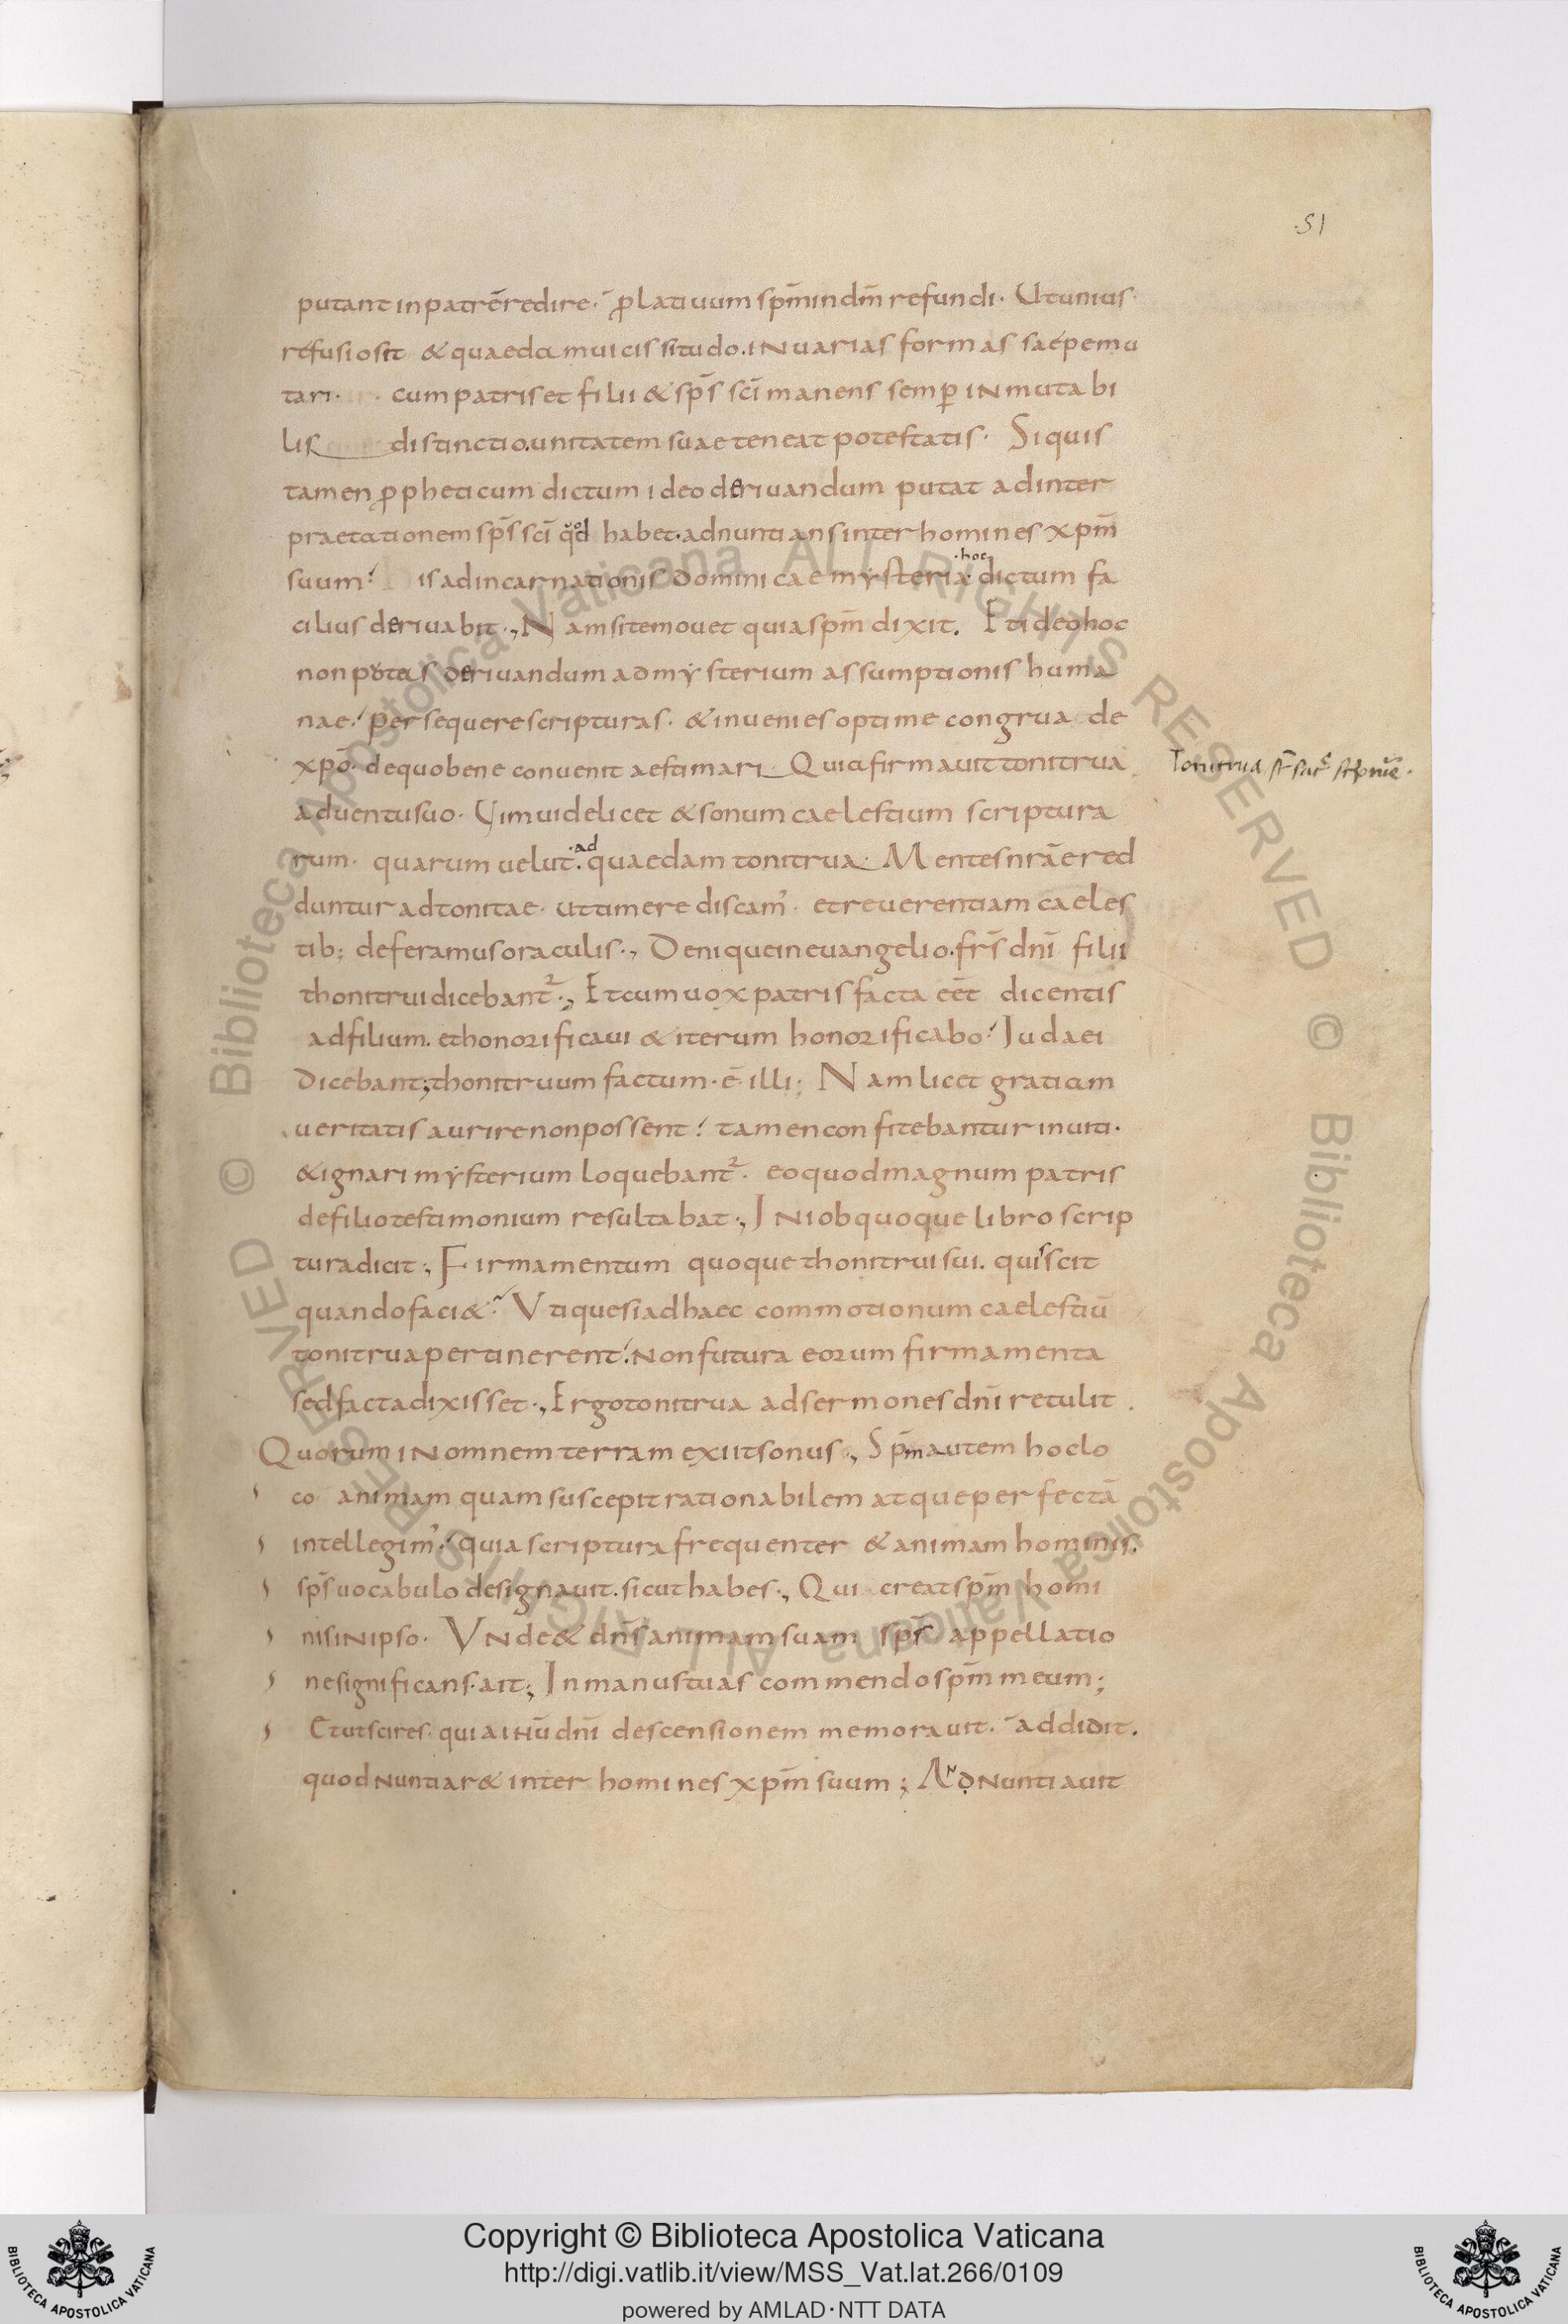 .51
putant in patrē redire· p̄ lativum sp̄m in dm̄ refundi· Ut unius
refusio sit & quaedam vicissitudo. in varias formas saepe mu
tari· cum patris et filii & sp̄s sc̄i manens semp̱ inmutabi
lis distinctio. unitatem suae teneat potestatis· Si quis
tamen ꝓpheticum dictum ideo derivandum putat ad inter
praetationem sp̄s sc̄i qd̄ habet· adnuntians inter homines xp̄m
suum? is ad incarnationis dominicae mysteria· hoc dictum fa
cilius derivabit·, Nam si te movet quia sp̄m dixit. Et ideo hoc
non putas derivandum ad mysterium assumptionis huma
nae? persequere scripturas· & invenies optime congrua de
xp̄o· de quo bene convenit aestimari Quia firmavit tonitrua
Tonitrua
adventu suo· Vim videlicet & sonum caelestium scriptura
rum· quarum velut· ad quaedam tonitrua· Mentes nr̄ae red
duntur adtonitae· ut timere discam' · et reverentiam caeles
tib; deferamus oraculis·, Denique in evangelio. fr̄s dn̄i filii
thonitrui dicebant᷑·, Et cum vox patris facta eēt dicentis
ad filium. et honorificavi & iterum honorificabo? Judaei
dicebant; thonitruum factum· ē illi; Nam licet gratiam
veritatis aurire non possent? tamen confitebantur inviti·
& ignari mysterium loquebant᷑· eo quod magnum patris
de filio testimonium resultabat·, In iob quoque libro scrip
tura dicit·, Firmamentum quoque thonitrui sui. quis scit
quando faci&? Utique si ad haec commotionum caelestiū
tonitrua pertinerent? non futura eorum firmamenta
sed facta dixisset·, Ergo tonitrua ad sermones dn̄i retulit.
Quorum in omnem terram exiit sonus·, Sp̄m autem hoc lo
co animam quam suscepit rationabilem atque perfectā
intellegim'? quia scriptura frequenter & animam hominis.
sp̄s vocabulo designavit. sicut habes·, Qui creat sp̄m homi
nis in ipso· Unde & dn̄s animam suam sp̄s appellatio
ne significans· ait·, In manus tuas commendo sp̄m meum;
Et ut scires· quia inū dn̄i descensionem memoravit· addidit.
quod nuntiar& inter homines xp̄m suum; Adnuntiavit
Copyright © Biblioteca Apostolica Vaticana
http://digi.vatlib.it/view/MSS_Vat.lat.266/0109
powered by AMLAD·NTT DATA
BIBLIOTECA APOSTOLICA VATICANA
BIBLIOTECA APOSTOLICA VATICANA
© Biblioteca Apostolica Vaticana ALL RIGHTS RESERVED © Biblioteca Apostolica Vaticana ALL RIGHTS RESERVED